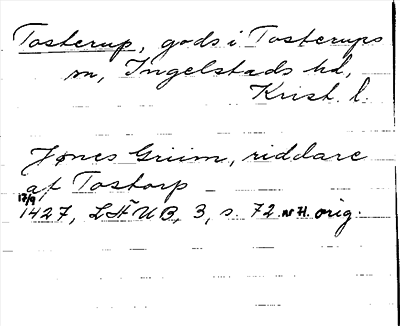 Tosterup, gods i Tosterups
sn, Ingelstads hd,
Krist. l.
Jønes Griim, riddare
af Tostorp
17/9
1427, LÅUB, 3, s. 72. nr 71. orig.